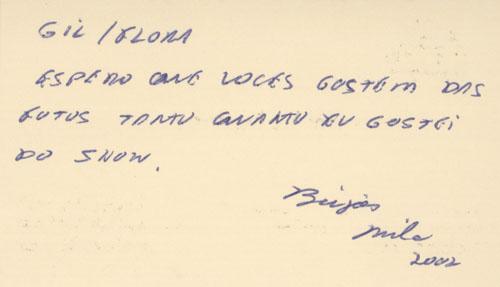 GIL / FLORA
ESPERO QUE VOCES GOSTEM DAS
FOTOS TANTO QUANTO EU GOSTEI
DO SHOW.
Beijos
Mila
2002